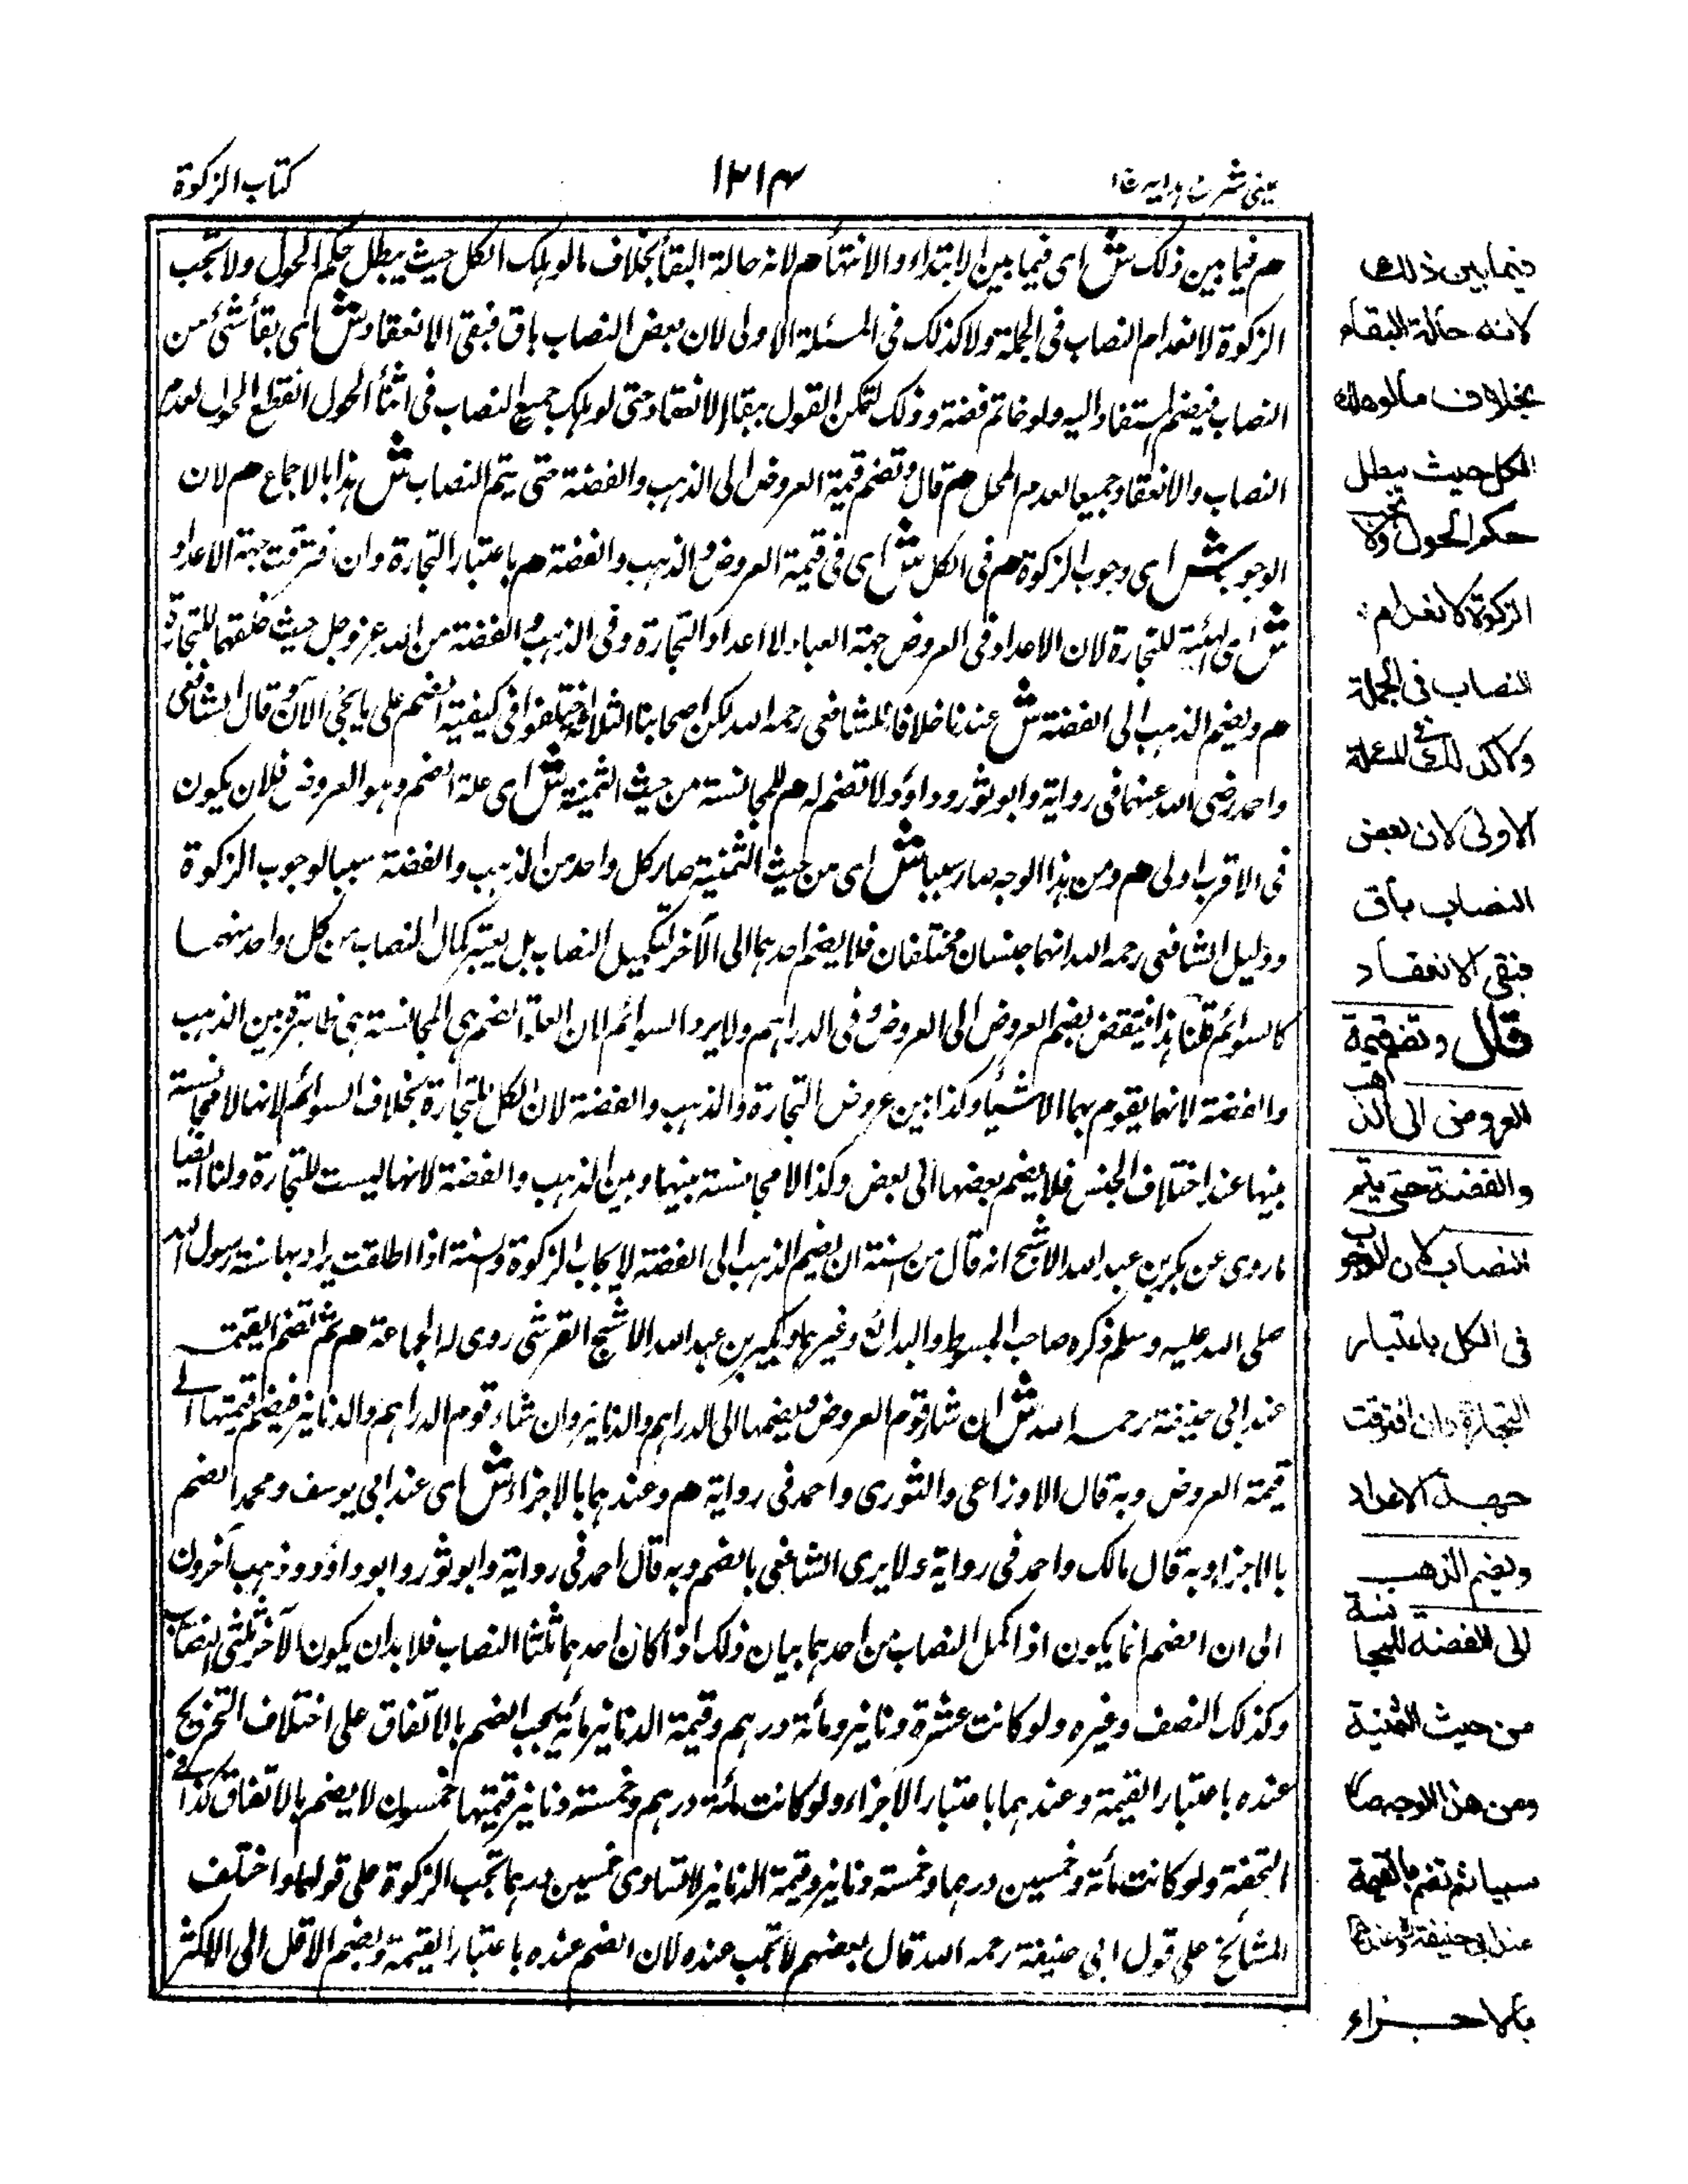 عيني شرح هدايه ج ١
١٢١٤
كتاب الزكوة
هم فيما بين ذلك ش اى فيما بين الابتداء والانتهاء هم لانه حالة البقاء بخلاف ما لو هلك الكل حيث يبطل حكم الحول ولا تجب
الزكوة لانعدام النصاب فى الجملة ولا كذلك فى المسئلة الاولى لان بعض النصاب باق فبقى الانعقاد ش اى بقاء شئ من
النصاب فيضم المستفاد اليه ولو خاتم فضة وذلك لتمكن القول ببقاء الانعقاد حتى لو هلك جميع النصاب فى اثناء الحول انقطع الحول لعدم
النصاب والانعقاد جميعا لعدم المحل هم قال وتضم قيمة العروض الى الذهب والفضة حتى يتم النصاب ش هذا بالاجماع هم لان
الوجوب ش اى وجوب الزكوة هم فى الكل ش اى فى قيمة العروض والذهب والفضة هم باعتبار التجارة وان افترقت جهة الاعداد
ش اى التهيئة للتجارة لان الاعداد فى العروض جهة العباد لاعداد التجارة وفى الذهب والفضة من الله عز وجل حيث خلقهما للتجارة
هم ويضم الذهب الى الفضة ش عندنا خلافا للشافعى رحمه الله لكن اصحابنا الثلاثة اختلفوا فى كيفية الضم على ما يجئ الآن وقال الشافعى
واحمد رضى الله عنهما فى رواية وابو ثور وداؤد لا تضم له هم للمجانسة من حيث الثمنية ش اى علة الضم وهو العروض فلان يكون
فى الاقرب اولى هم ومن هذا الوجه صار سببا ش اى من حيث الثمنية صار كل واحد من الذهب والفضة سببا لوجوب الزكوة
ودليل الشافعى رحمه الله انهما جنسان مختلفان فلا يضم احدهما الى الآخر لتكميل النصاب بل يعتبر كمال النصاب من كل واحد منهما
كالسوائم قلنا هذا ينتقض بضم العروض الى العروض وفى الدراهم ولا يرد السوائم لان العلة الضم هى المجانسة هى ظاهرة بين الذهب
والفضة لانهما يقوم بهما الاشياء وكذا بين عروض التجارة والذهب والفضة لان الكل للتجارة بخلاف السوائم لانها لا مجانسة
بينها عند اختلاف الجنس فلا يضم بعضها الى بعض وكذا لا مجانسة بينها وبين الذهب والفضة لانها ليست للتجارة ولنا ايضا
ما روى عن بكير بن عبد الله الاشج انه قال من السنة ان يضم الذهب الى الفضة لايجاب الزكوة والسنة اذا اطلقت يراد بها سنة رسول الله
صلى الله عليه وسلم ذكره صاحب المبسوط والبدائع وغيرهما وبكير بن عبد الله الاشج القرشى روى له الجماعة هم ثم تضم بالقيمة
عند ابى حنيفة رحمه الله ش ان شاء قوم العروض فيضمها الى الدراهم والدنانير وان شاء قوم الدراهم والدنانير فيضم قيمتها الى
قيمة العروض وبه قال الاوزاعى والثورى واحمد فى رواية هم وعندهما بالاجزاء ش اى عند ابى يوسف ومحمد الضم
بالاجزاء وبه قال مالك واحمد فى رواية ولا يرى الشافعى بالضم وبه قال احمد فى رواية وابو ثور وابو داؤد وذهب آخرون
الى ان الضم انما يكون اذا كمل النصاب من احدهما بيان ذلك اذا كان احدهما ثلثا النصاب فلا بد ان يكون الآخر ثلثى النصاب
وكذلك النصف وغيره ولو كانت عشرة دنانير ومائة درهم وقيمة الدنانير مائة يجب الضم بالاتفاق على اختلاف التخريج
عنده باعتبار القيمة وعندهما باعتبار الاجزاء ولو كانت مائة درهم وخمسة دنانير قيمتها خمسون لا يضم بالاتفاق كذا فى
التحفة ولو كانت مائة وخمسين درهما وخمسة دنانير وقيمة الدنانير لا تساوى خمسين درهما تجب الزكوة على قولهما واختلف
المشائخ على قول ابى حنيفة رحمه الله قال بعضهم لا تجب عنده لان الضم عنده باعتبار القيمة ويضم الاقل الى الاكثر
فيما بين ذلك
لانه حالة البقاء
بخلاف ما لو هلك
الكل حيث يبطل
حكم الحول ولا تجب
الزكوة لانعدام
النصاب فى الجملة
ولا كذلك فى المسئلة
الاولى لان بعض
النصاب باق
فبقى الانعقاد
قال وتضم قيمة
العروض الى الذهب
والفضة حتى يتم
النصاب لان الوجوب
فى الكل باعتبار
التجارة وان افترقت
جهة الاعداد
ويضم الذهب
الى الفضة للمجانسة
من حيث الثمنية
ومن هذا الوجه صار
سببا ثم تضم بالقيمة
عند ابى حنيفة وعندهما
بالاجزاء